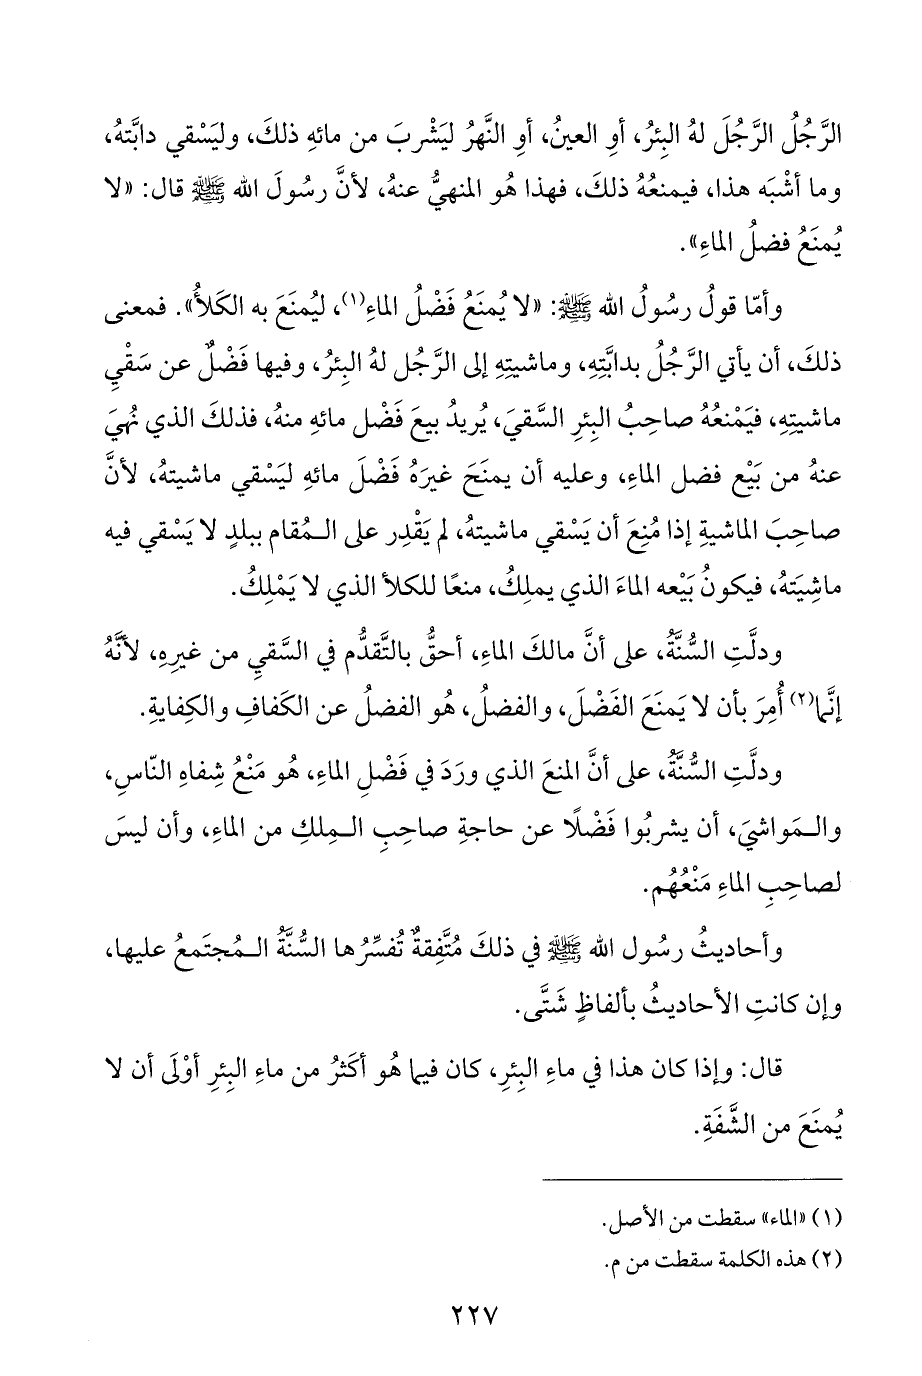 الرَّجُلُ الرَّجُلَ لهُ البِئرُ، أوِ العينُ، أوِ النَّهرُ ليَشْربَ من مائهِ ذلكَ، وليَسْقي دابَّتهُ،
وما أشْبَه هذا، فيمنعُهُ ذلكَ، فهذا هُو المنهيُّ عنهُ، لأنَّ رسُولَ الله ﷺ قال: «لا
يُمنَعُ فضلُ الماءِ».
وأمّا قولُ رسُولُ الله ﷺ: «لا يُمنَعُ فَضْلُ الماءِ(١)، ليُمنَعَ به الكَلأُ». فمعنى
ذلكَ، أن يأتي الرَّجُلُ بدابَّتِهِ، وماشيتِهِ إلى الرَّجُل لهُ البِئرُ، وفيها فَضْلٌ عن سَقْيِ
ماشيتِهِ، فيَمْنعُهُ صاحِبُ البِئرِ السَّقيَ، يُريدُ بيعَ فَضْل مائهِ منهُ، فذلكَ الذي نُهيَ
عنهُ من بَيْع فضل الماءِ، وعليه أن يمنَحَ غيرَهُ فَضْلَ مائهِ ليَسْقي ماشيتهُ، لأنَّ
صاحِبَ الماشيةِ إذا مُنِعَ أن يَسْقي ماشيتهُ، لم يَقْدِر على المُقام ببلدٍ لا يَسْقي فيه
ماشِيَتَهُ، فيكونُ بَيْعه الماءَ الذي يملِكُ، منعًا للكلأ الذي لا يَمْلِكُ.
ودلَّتِ السُّنَّةُ، على أنَّ مالكَ الماءِ، أحقُّ بالتَّقدُّم في السَّقيِ من غيرِهِ، لأنَّهُ
إنَّما(٢) أُمِرَ بأن لا يَمنَعَ الفَضْلَ، والفضلُ، هُو الفضلُ عن الكَفافِ والكِفايةِ.
ودلَّتِ السُّنَّةُ، على أنَّ المنعَ الذي ورَدَ في فَضْلِ الماءِ، هُو مَنْعُ شِفاهِ النّاسِ،
والمَواشيَ، أن يشربُوا فَضْلًا عن حاجةِ صاحِبِ المِلكِ من الماءِ، وأن ليسَ
لصاحِبِ الماءِ مَنْعُهُم.
وأحاديثُ رسُول الله ﷺ في ذلكَ مُتَّفِقةٌ تُفسِّرُها السُّنَّةُ المُجتَمعُ عليها،
وإن كانتِ الأحاديثُ بألفاظٍ شَتَّى.
قال: وإذا كان هذا في ماءِ البِئرِ، كان فيما هُو أكثرُ من ماءِ البِئرِ أوْلَى أن لا
يُمنَعَ من الشَّفَةِ.
(١) «الماء» سقطت من الأصل.
(٢) هذه الكلمة سقطت من م.
٢٢٧